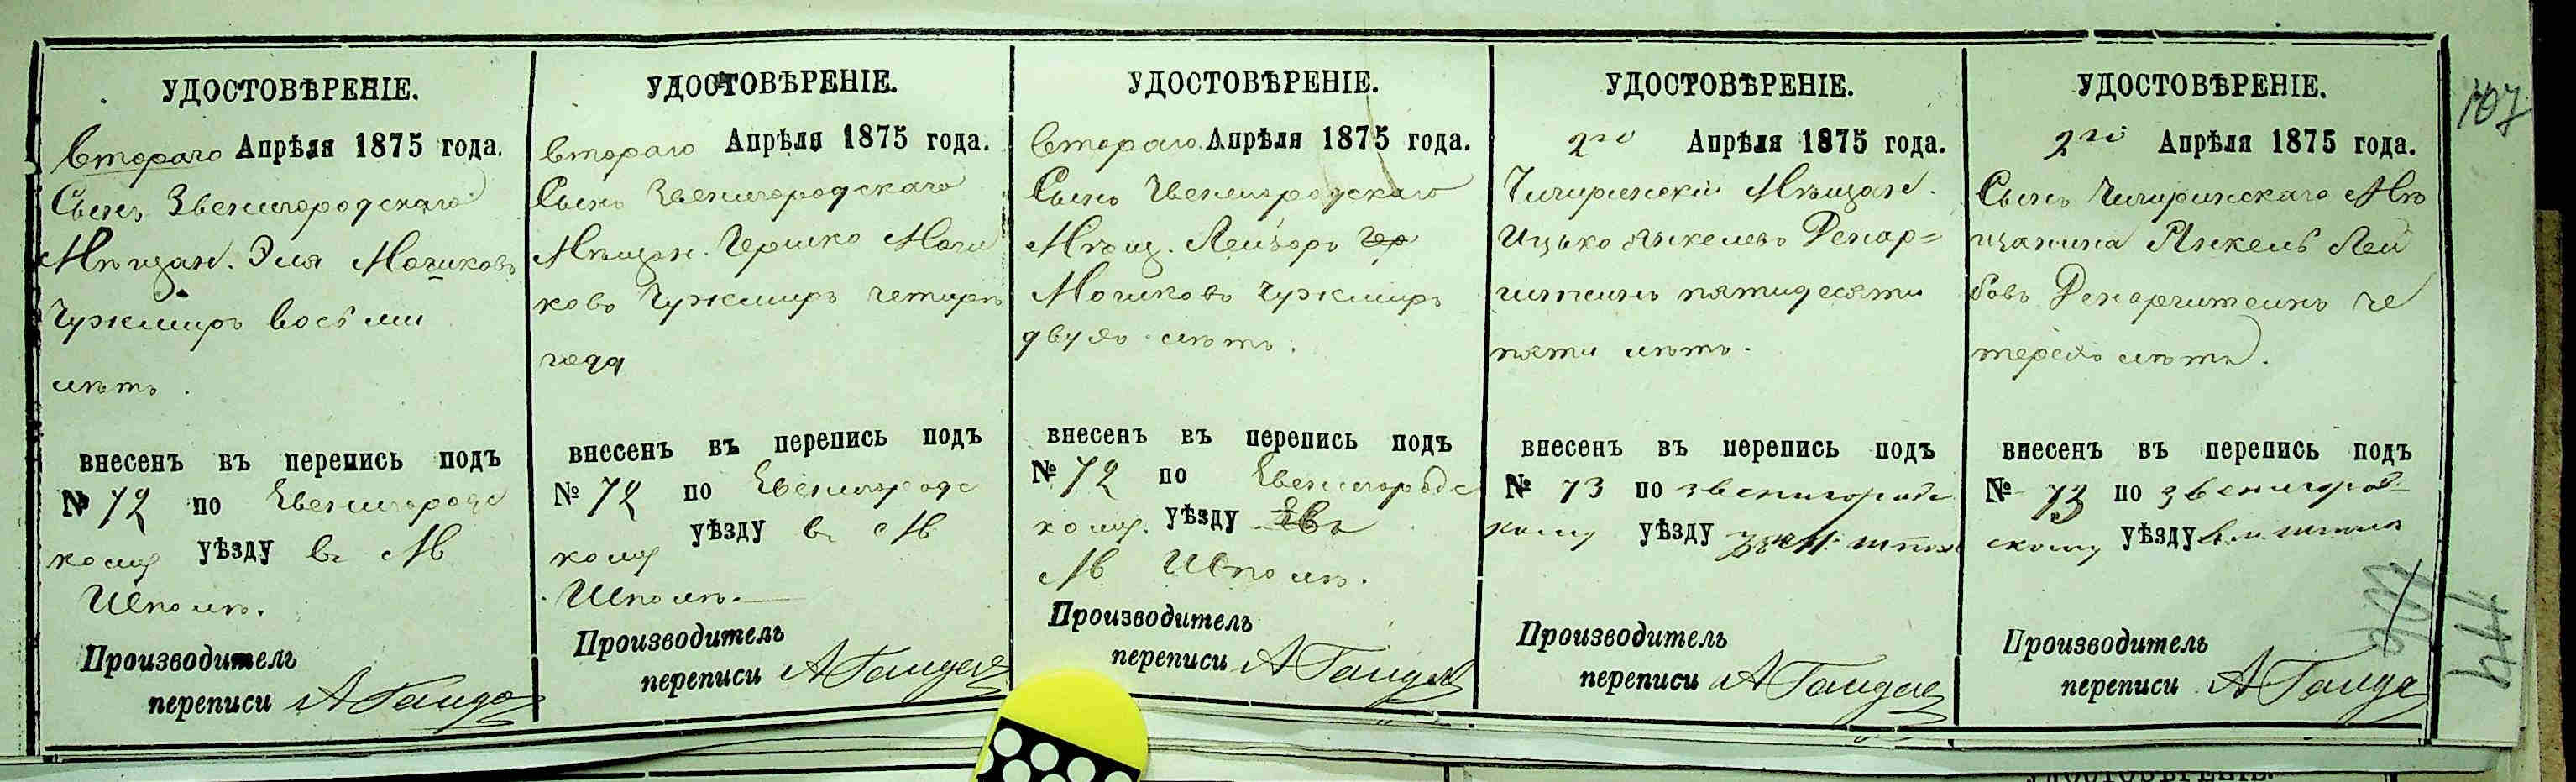 УДОСТОВѢРЕНІЕ.
Втораго Апрѣля 1875 года.
Сынъ Звенигородскаго
Мѣщан. Эля Мошковъ
Чужмиръ восьми
лѣтъ.
внесенъ въ перепись подъ
№ 72 по Звенигородс
кому уѣзду въ М
Шполѣ.
Производитель
переписи
УДОСТОВѢРЕНІЕ.
Втораго Апрѣля 1875 года.
Сынъ Звенигородскаго
Мѣщан. Гершко Мош
ковъ Чужмиръ четырѣ
года
внесенъ въ перепись подъ
№ 72 по Звенигородс
кому уѣзду въ М
Шполѣ.
Производитель
переписи
УДОСТОВѢРЕНІЕ.
Втораго Апрѣля 1875 года.
Сынъ Звенигородскаго
Мѣщ. Лейзоръ Гер
Мошковъ Чужмиръ
двухъ лѣтъ.
внесенъ въ перепись подъ
№ 72 по Звенигородс
кому уѣзду Зв въ
М Шполѣ.
Производитель
переписи
УДОСТОВѢРЕНІЕ.
2го Апрѣля 1875 года.
Чигиринскій Мѣщан.
Ицько Янкелевъ
пятидесяти
пяти лѣтъ.
внесенъ въ перепись подъ
№ 73 по звенигородс
кому уѣзду
Производитель
переписи
УДОСТОВѢРЕНІЕ.
2го Апрѣля 1875 года.
Сынъ Чигиринскаго Мѣ
щанина Янкель Лей
бовъ че
терехъ лѣтъ.
внесенъ въ перепись подъ
№ 73 по звенигород
скому уѣзду в м. шполѣ
Производитель
переписи
107